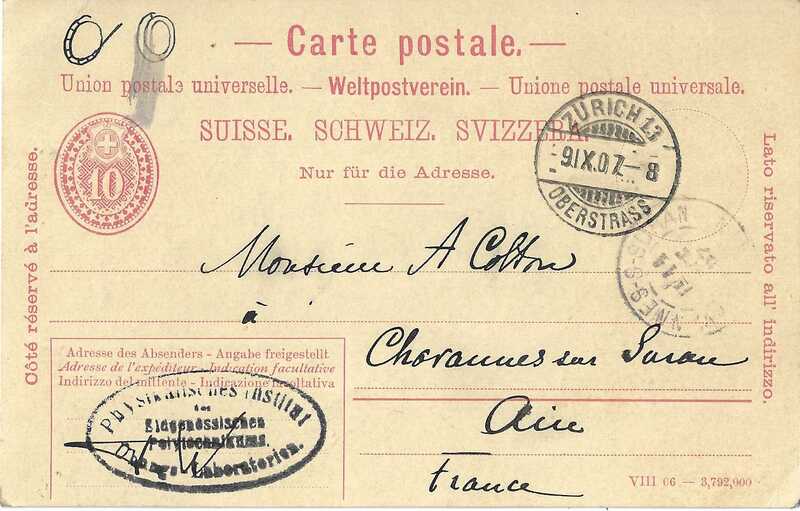 — Carte postale. —
Union postale universelle. — Weltpostverein. — Unione postale universale.
SUISSE. SCHWEIZ. SVIZZERA.
Nur für die Adresse.
10
Côté réservé à l'adresse.
Lato riservato all' indirizzo.
ZÜRICH 13
9.IX.07.–8
OBERSTRASS
Monsieur A Cotton
à
Chavannes sur Suran
Ain
France
Adresse des Absenders - Angabe freigestellt
Adresse de l'expéditeur - Indication facultative
Indirizzo del mittente - Indicazione facoltativa
Physikalisches Institut
des
Eidgenössischen
Polytechnikums.
Laboratorien.
VIII 06 — 3,792,000